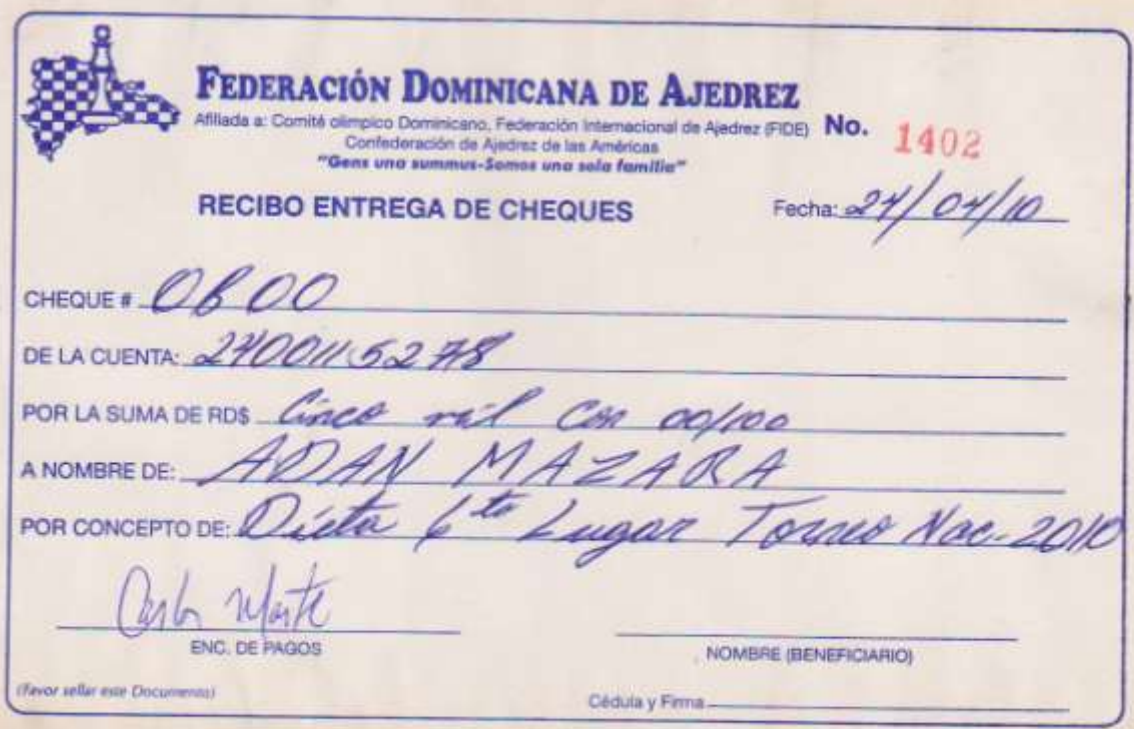 FEDERACIÓN DOMINICANA DE AJEDREZ
Afiliada a: Comité olímpico Dominicano, Federación Internacional de Ajedrez (FIDE) No. 1402
Confederación de Ajedrez de las Américas
"Gens una summus-Somos una sola familia"
RECIBO ENTREGA DE CHEQUES Fecha: 24/04/10
CHEQUE # 0600
DE LA CUENTA: 2400115278
POR LA SUMA DE RD$ Cinco mil con 00/100
A NOMBRE DE: ADAN MAZARA
POR CONCEPTO DE: Dieta 6to Lugar Torneo Nac. 2010
Carlos Marte
ENC. DE PAGOS
NOMBRE (BENEFICIARIO)
(Favor sellar este Documento)
Cédula y Firma